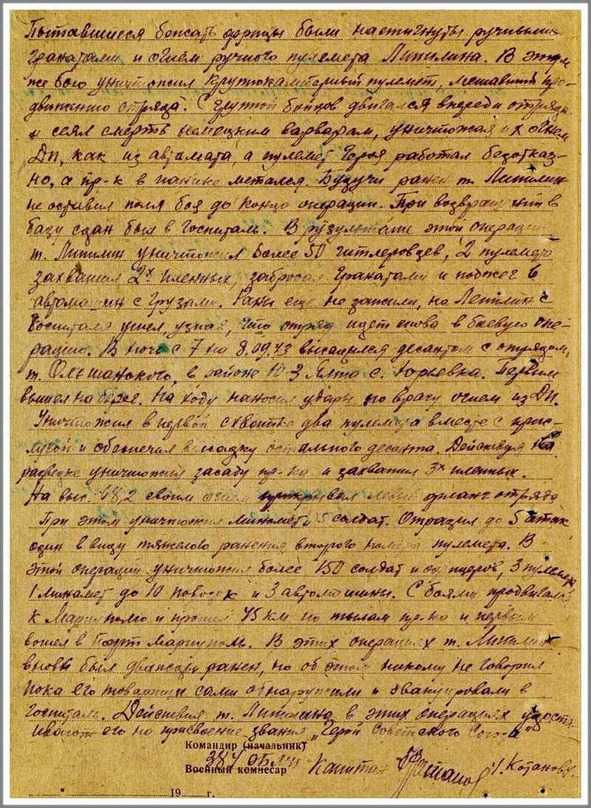 Пытавшиеся бежать фрицы были настигнуты ручными
гранатами и огнем ручного пулемета Липилина. В этом
же бою уничтожил крупнокалиберный пулемет, мешавший про-
движению отряда. С группой бойцов двигался впереди отряда
и сеял смерть немецким варварам, уничтожая их огнем
Дп, как из автомата, а пулемет Героя работал безотказ-
но, а пр-к в панике метался. Будучи ранен т. Липилин
не оставил поля боя до конца операции. При возвращении в
базу сдан был в госпиталь. В результате этой операции
т. Липилин уничтожил более 50 гитлеровцев, 2 пулемета
захватил 2х пленных, забросал гранатами и поджег 6
автомашин с грузами. Раны еще не зажили, но Липилин с
госпиталя ушел, узнав, что отряд идет снова в боевую опе-
рацию. В ночь с 7 на 8.09.43 высадился десантом с отрядом
т. Ольшанского, в районе Ялта с. Юрьевка. Первым
вышел на берег. На ходу наносил удары по врагу огнем из Дп.
Уничтожил в первой схватке два пулемета вместе с прис-
лугой и обеспечил высадку остального десанта. Действуя в
разведке уничтожил засаду пр-ка и захватил 3х пленных.
На выс. 68,2 своим огнем прикрывал левый фланг отряда
При этом уничтожил миномет, солдат. Отразил до 5 атак
один в виду тяжелого ранения второго номера пулемета. В
этой операции уничтожил более 150 солдат и офицеров, 3 пулемета
1 миномет до 10 повозок и 3 автомашины. С боями продвигался
к Мариуполю и прошел 45 км по тылам пр-ка и первым
вошел в Порт Мариуполь. В этих операциях т. Липилин
вновь был ранен, но об этом никому не говорил
пока его товарищи сами обнаружили и эвакуировали в
госпиталь. Действия т. Липилина в этих операциях удоста-
ивают его на присвоение звания „Герой Советского Союза"
Командир (начальник)
384 ОБМП
Военный комиссар Капитан
19 г.